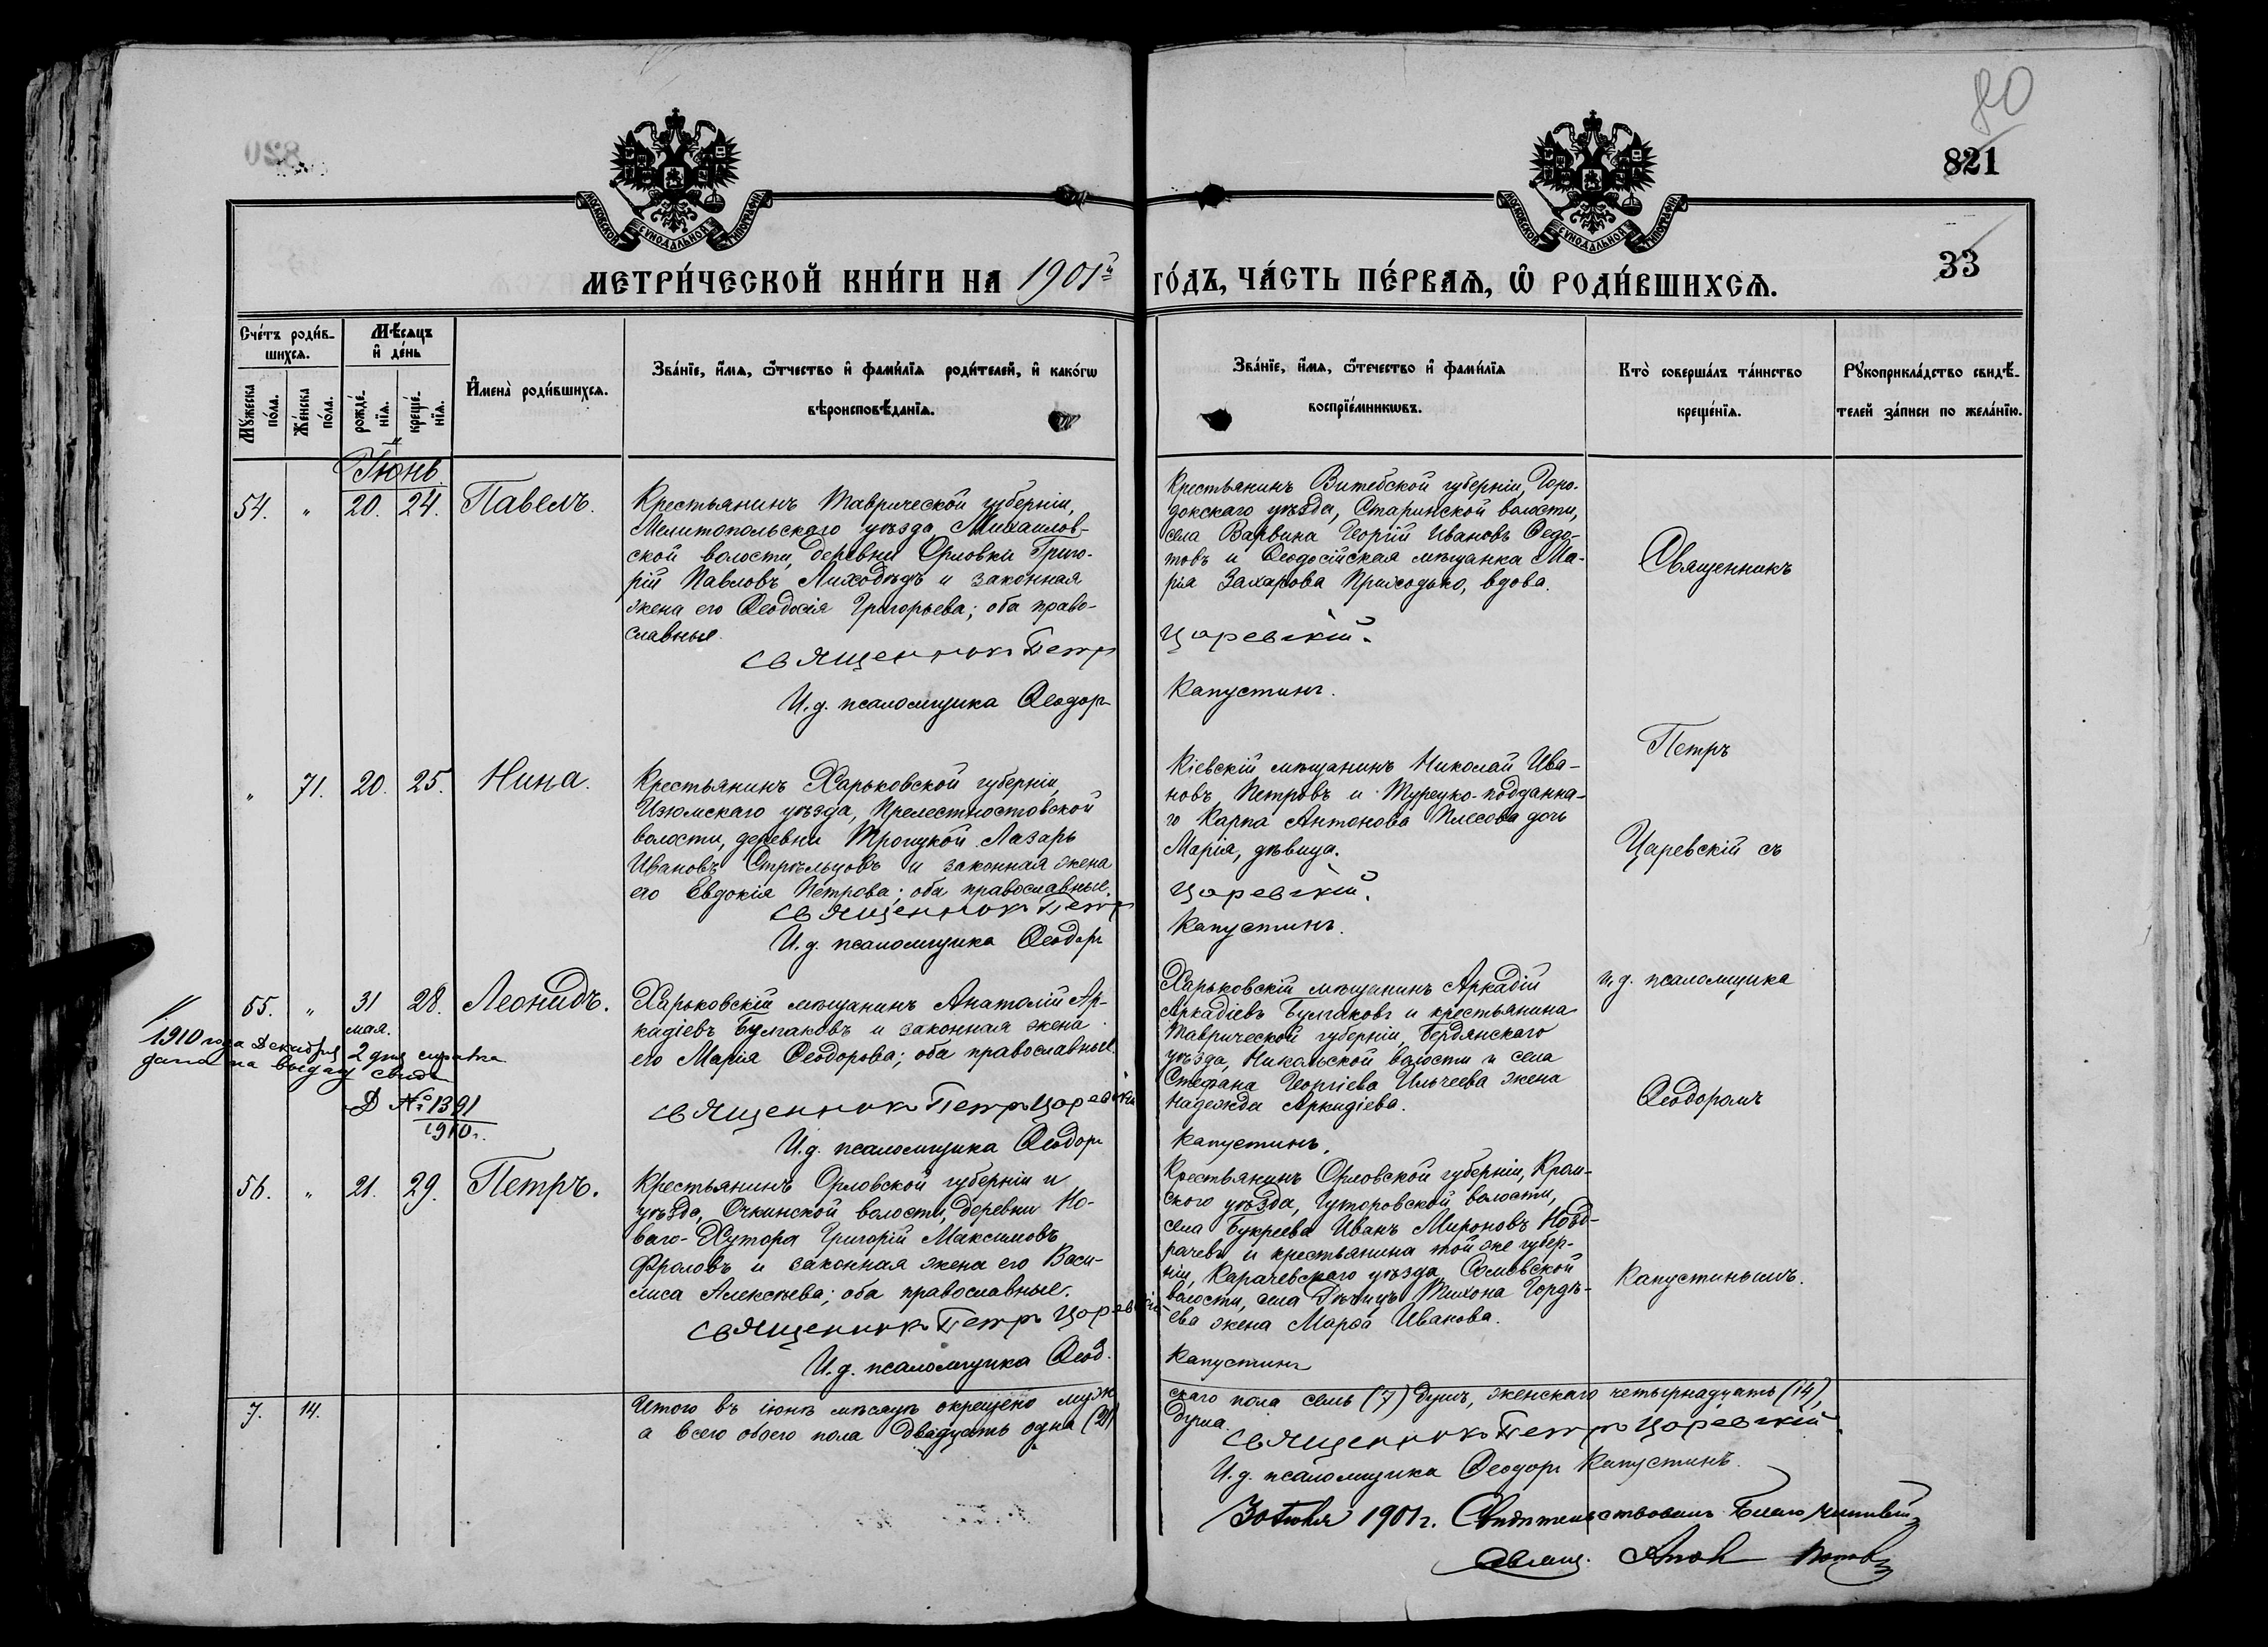 80
821
33
МОСКОВСКОЙ СУНОДАЛЬНОЙ ТИПОГРАФІИ
МОСКОВСКОЙ СУНОДАЛЬНОЙ ТИПОГРАФІИ
МЕТРИ́ЧЕСКОЙ КНИ́ГИ НА 1901й ГО́ДЪ, ЧА́СТЬ ПЕ́РВАѦ, Ѽ РОДИ́ВШИХСѦ.
Сче́тъ роди́в-
шихсѧ.
Мѣ́сѧцъ
и҆ де́нь
Му́жеска по́ла.
Же́нска по́ла.
рожде́-
нїѧ.
креще́-
нїѧ.
И҆мена̀ роди́вшихсѧ.
Зва́нїе, и҆́мѧ, ѻ҆́тчество и҆ фами́лїѧ роди́телей, и҆ како́гѡ
вѣроисповѣ́данїѧ.
Зва́нїе, и҆́мѧ, ѻ҆́течество и҆ фами́лїѧ
воспрїе́мникѡвъ.
Кто̀ соверша́лъ та́инство
креще́нїѧ.
Рꙋкоприкла́дство свидѣ́-
телей за́писи по жела́нїю.
Іюнь
54. " 20. 24. Павелъ.
Крестьянинъ Таврической губерніи,
Мелитопольскаго уѣзда, Михайлов-
ской волости, деревни Орловки Григо-
рій Павловъ Лиходѣдъ и законная
жена его Ѳеодосія Григорьева; оба право-
славные.
Священникъ Петръ
И. д. псаломщика Ѳеодоръ
Крестьянинъ Витебской губерніи, Горо-
докскаго уѣзда, Старинской волости,
села Варвина Георгій Ивановъ Ѳедо-
товъ и Ѳеодосійская мѣщанка Ма-
рія Захарова Приходько, вдова.
Царевскій.
Капустинъ.
Священникъ
Петръ
Царевскій съ
и. д. псаломщика
Ѳеодоромъ
Капустинымъ.
" 71. 20. 25. Нина.
Крестьянинъ Харьковской губерніи,
Изюмскаго уѣзда, Прелестностовской
волости, деревни Троицкой Лазарь
Ивановъ Стрѣльцовъ и законная жена
его Евдокія Петрова; оба православные.
Священникъ Петръ
И. д. псаломщика Ѳеодоръ
Кіевскій мѣщанинъ Николай Ива-
новъ Петровъ и Турецко-подданна-
го Карпа Антонова Плесова дочь
Марія, дѣвица.
Царевскій.
Капустинъ.
55. " 31 мая. 28. Леонидъ.
1910 года Декабря 2 дня справка
дана на выдачу свид.
№ 1391
1910г.
Харьковскій мѣщанинъ Анатолій Ар-
кадіевъ Булгаковъ и законная жена
его Марія Ѳеодорова; оба православные.
Священникъ Петръ Царевскій
И. д. псаломщика Ѳеодоръ
Харьковскій мѣщанинъ Аркадій
Аркадіевъ Булгаковъ и крестьянина
Таврической губерніи, Бердянскаго
уѣзда, Никольской волости и села
Стефана Георгіева Ильчеева жена
Надежда Аркадіева.
Капустинъ.
56. " 21. 29. Петръ.
Крестьянинъ Орловской губерніи и
уѣзда, Очкинской волости, деревни Но-
ваго-Хутора Григорій Максимовъ
Фроловъ и законная жена его Васи-
лиса Алексѣева; оба православные.
Священникъ Петръ Царевскій
И. д. псаломщика Ѳеод.
Крестьянинъ Орловской губерніи, Кром-
скаго уѣзда, Гуторовской волости,
села Букреева Иванъ Мироновъ Нозд-
рачевъ и крестьянина той же губер-
ніи, Карачевскаго уѣзда,
волости, села Тихона Гордѣ-
ева жена Марѳа Иванова.
Капустинъ
7. 14.
Итого въ іюнѣ мѣсяцѣ окрещено муж-
скаго пола семь (7) душъ, женскаго четырнадцать (14),
а всего обоего пола двадцать одна (21)
душа.
Священникъ Петръ Царевскій.
И. д. псаломщика Ѳеодоръ Капустинъ.
30 Іюня 1901 г. Свидѣтельствовалъ Благочинный
Свящ. Попов